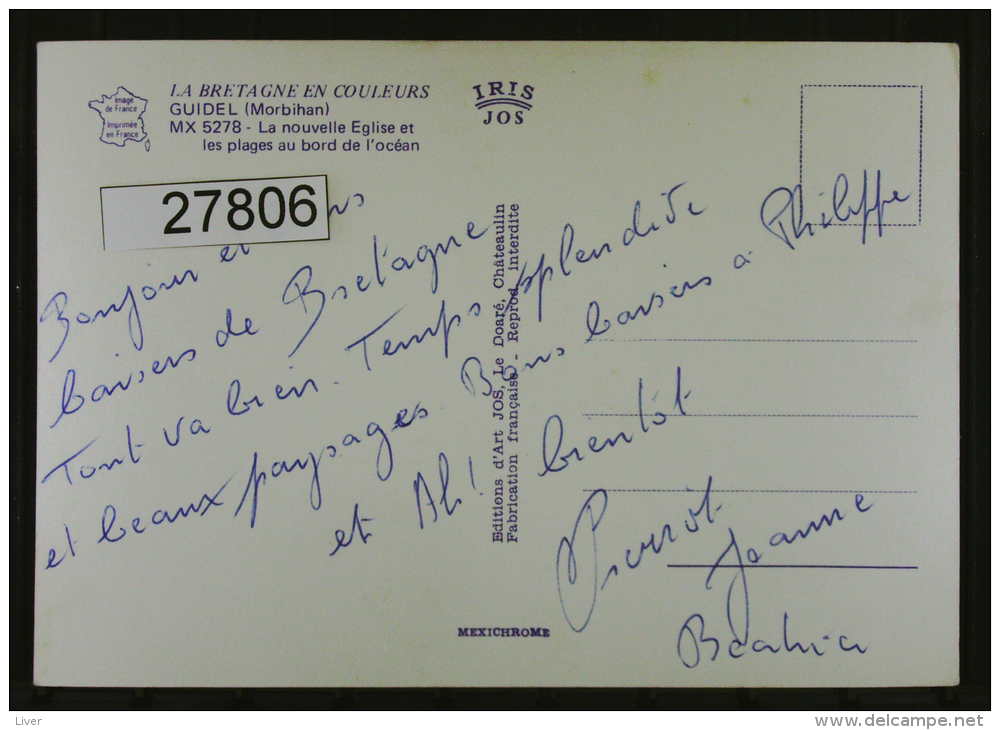 Image
de France
Imprimée
en France
LA BRETAGNE EN COULEURS
GUIDEL (Morbihan)
MX 5278 - La nouvelle Eglise et
les plages au bord de l'océan
IRIS
JOS
27806
Bonjour et
baisers de Bretagne
Tout va bien. Temps splendide
et beaux paysages. Bons baisers à Philippe
et Ah! bientôt
Pierrot
Jeanne
Editions d'Art JOS, Le Doaré, Châteaulin
Fabrication française - Reprod. interdite
MEXICHROME
Liver
www.delcampe.net